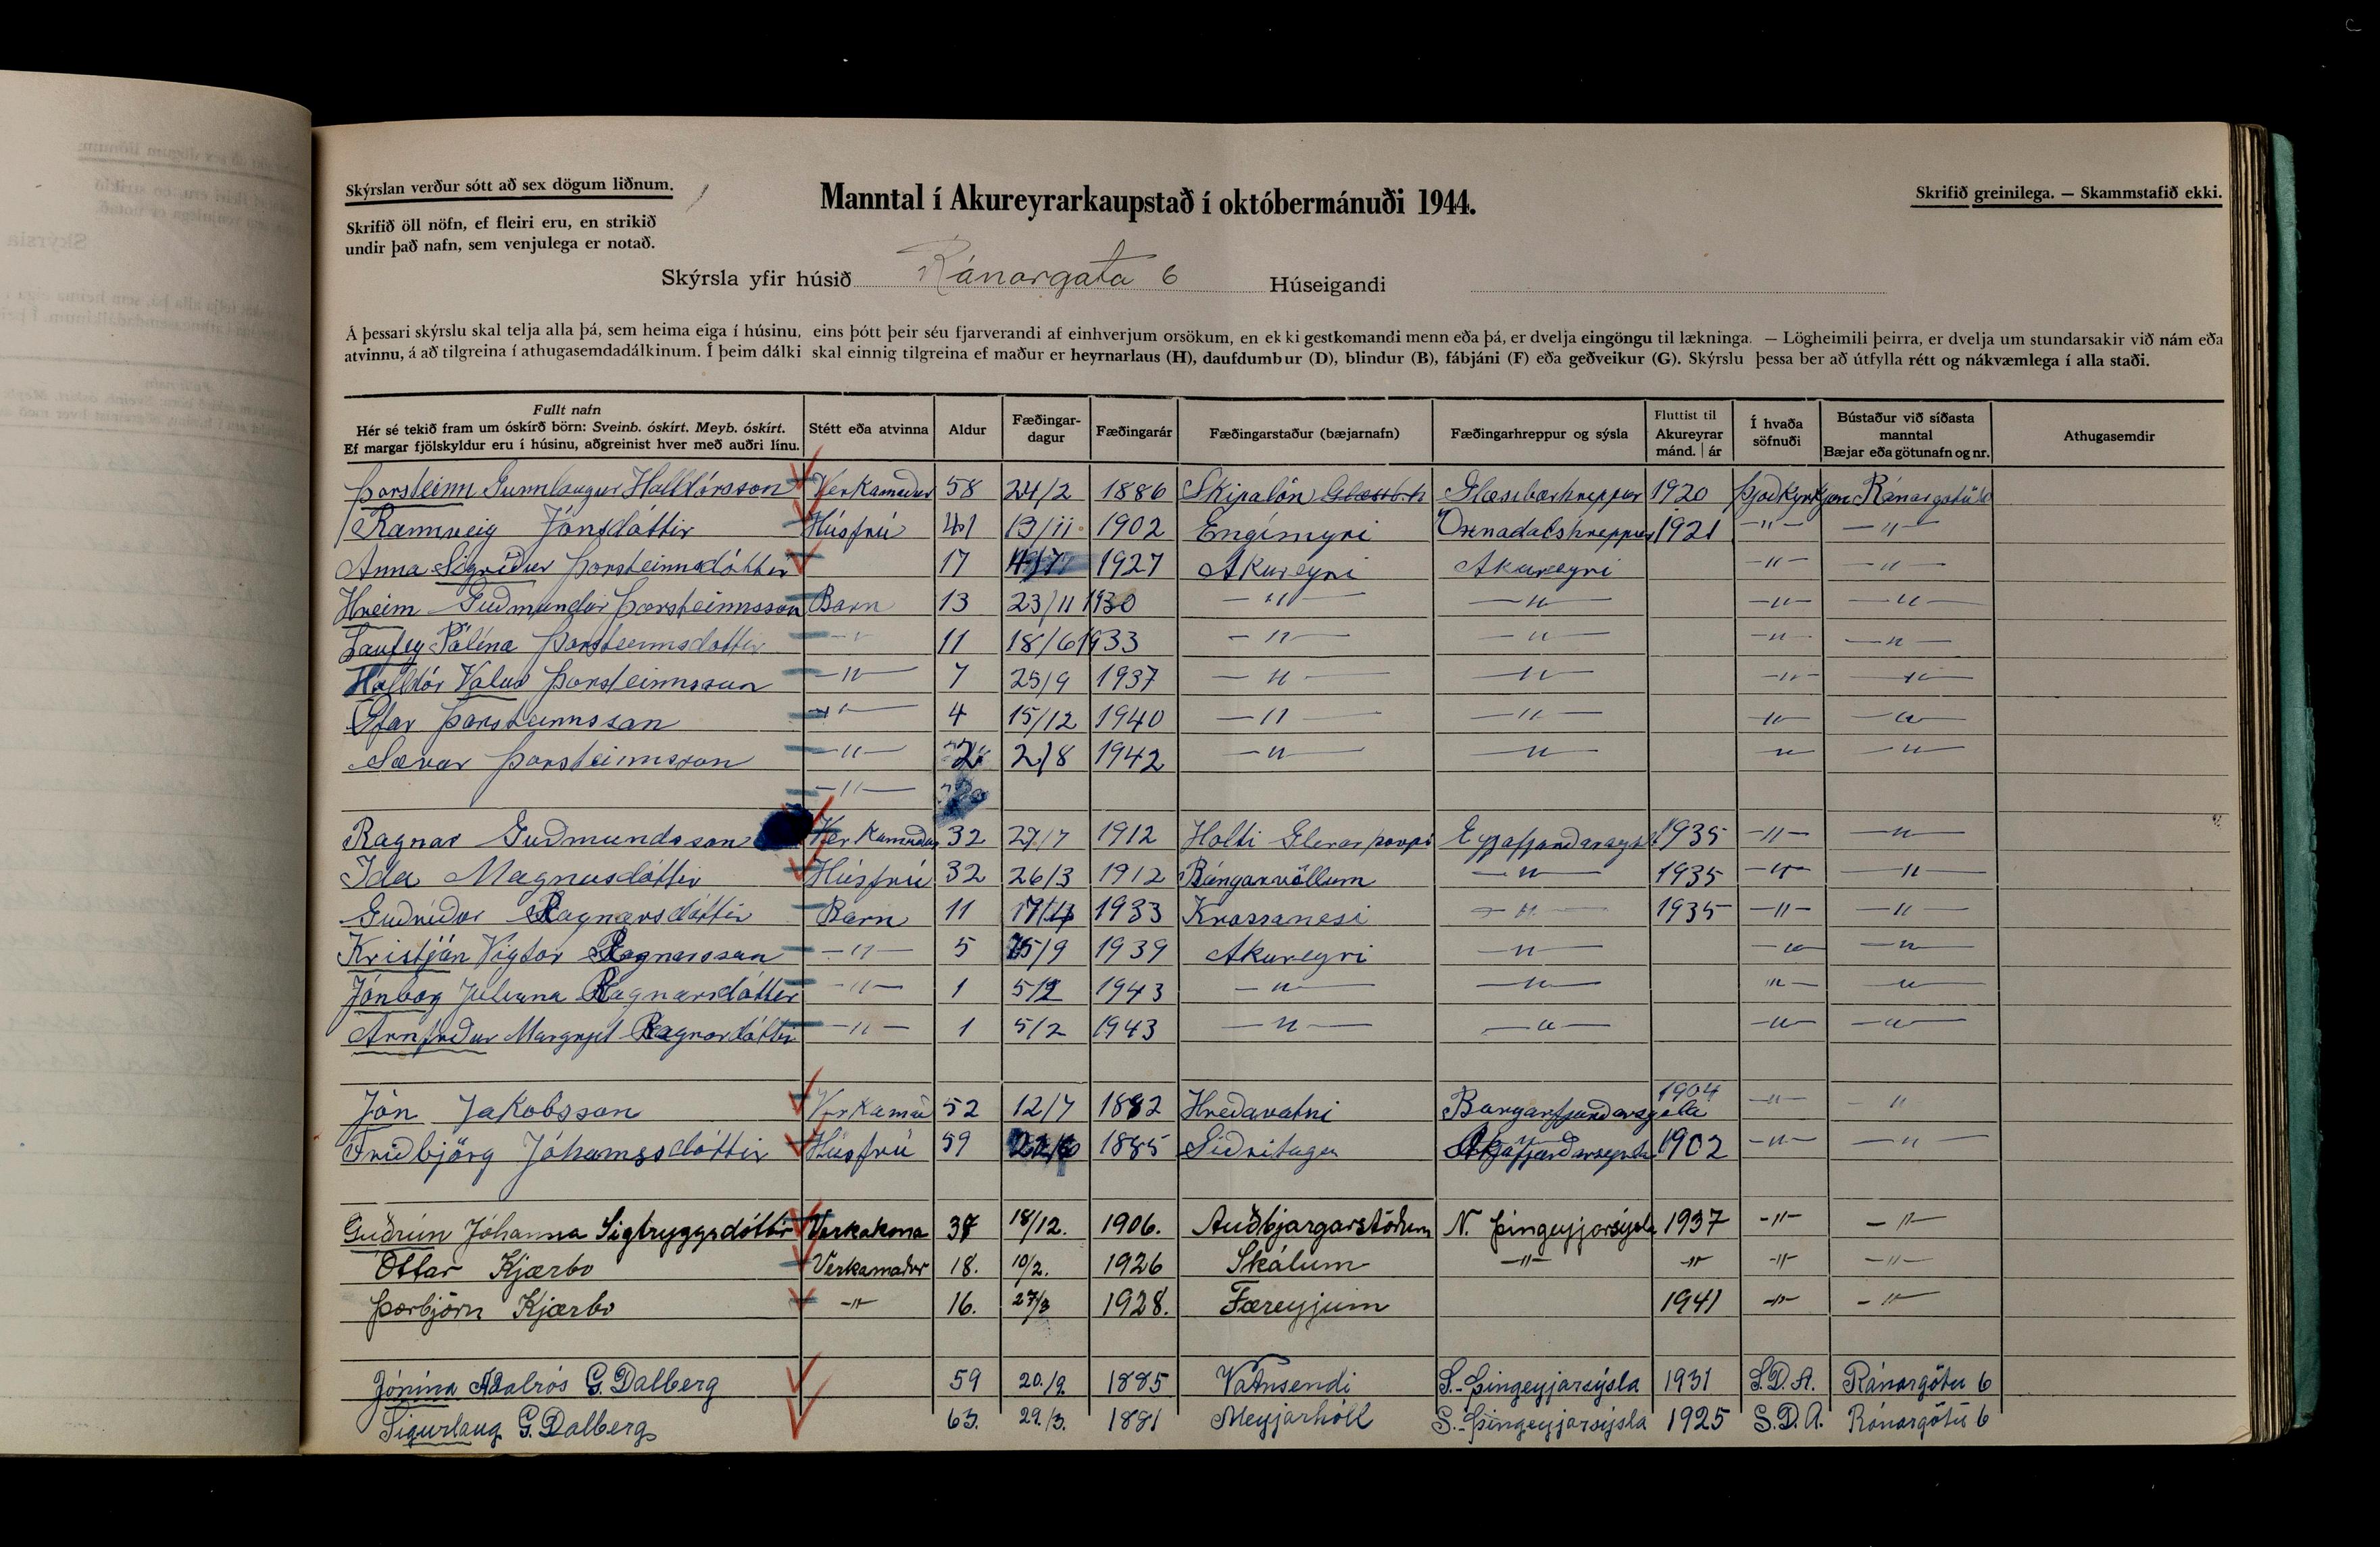 Skýrslan verður sótt að sex dögum liðnum.
Skrifið öll nöfn, ef fleiri eru, en strikið
undir það nafn, sem venjulega er notað.
Manntal í Akureyrarkaupstað í októbermánuði 1944.
Skrifið greinilega. — Skammstafið ekki.
Skýrsla yfir húsið Ránargata 6 Húseigandi
Á þessari skýrslu skal telja alla þá, sem heima eiga í húsinu, eins þótt þeir séu fjarverandi af einhverjum orsökum, en ekki gestkomandi menn eða þá, er dvelja eingöngu til lækninga. — Lögheimili þeirra, er dvelja um stundarsakir við nám eða
atvinnu, á að tilgreina í athugasemdadálkinum. Í þeim dálki skal einnig tilgreina ef maður er heyrnarlaus (H), daufdumbur (D), blindur (B), fábjáni (F) eða geðveikur (G). Skýrslu þessa ber að útfylla rétt og nákvæmlega í alla staði.
Fullt nafn
Hér sé tekið fram um óskírð börn: Sveinb. óskírt. Meyb. óskírt.
Ef margar fjölskyldur eru í húsinu, aðgreinist hver með auðri línu.
Stétt eða atvinna
Aldur
Fæðingar-
dagur
Fæðingarár
Fæðingarstaður (bæjarnafn)
Fæðingarhreppur og sýsla
Fluttist til
Akureyrar
mánd. | ár
Í hvaða
söfnuði
Bústaður við síðasta
manntal
Bæjar eða götunafn og nr.
Athugasemdir
Þorsteinn Gunnlaugur Halldórsson Verkamaður 58 24/2 1886 Skipalón Glæsibærhreppur 1920 Þjoðkyrkjan Ránargötu 6
Rannveig Jónsdóttir Húsfrú 41 13/11 1902 Engimyri Öxnadalshreppur 1921 -"- -"-
Anna Sigriður Þorsteinnsdóttir 17 1927 Akureyri Akureyri -"- -"-
Hreim Guðmundur Þorsteinnsson Barn 13 23/11 1930 -"- -"- -"- -"-
Laufey Pálína Þorsteinnsdottir -"- 11 18/6 1933 -"- -"- -"- -"-
Halldór Valur Þorsteinnsson -"- 7 25/9 1937 -"- -"- -"- -"-
Þorsteinnsson -"- 4 15/12 1940 -"- -"- -"- -"-
Sævar Þorsteinnsson -"- 2 2/8 1942 -"- -"- -"- -"-
-"-
Ragnar Guðmundsson Verkamaður 32 27/7 1912 Holti Glerarþorpi Eyjafjarðarsysl 1935 -"- -"-
Ida Magnusdóttir Húsfrú 32 26/3 1912 -"- 1935 -"- -"-
Guðriður Ragnarsdóttir Barn 11 1933 Krossanesi -"- 1935 -"- -"-
Kristján Vigtor Ragnarsson -"- 5 15/9 1939 Akureyri -"- -"- -"-
Jónborg Juliana Ragnarsdóttir -"- 1 5/2 1943 -"- -"- -"- -"-
Arnfriður Margrjet Ragnarsdóttir -"- 1 5/2 1943 -"- -"- -"- -"-
Jón Jakobsson Verkamað 52 12/7 1892 Hreðavatni Borgarfjarðarsysla 1904 -"- -"-
Friðbjörg Jóhannsdóttir Húsfrú 59 1885 1902 -"- -"-
Guðrún Jóhanna Sigtryggsdóttir Verkakona 37 18/12. 1906. Auðbjargarstöðum N. Þingeyjarsýsla 1937 -"- -"-
Óttar Kjærbo Verkamaður 18. 10/2. 1926 Skálum -"- -"- -"- -"-
Þorbjörn Kjærbo -"- 16. 27/3 1928. Færeyjum 1941 -"- -"-
Jónína Aðalrós G. Dalberg 59 20./9. 1885 Vatnsendi S.-Þingeyjarsýsla 1931 S.D.A. Ránargötu 6
Sigurlaug G. Dalberg 63. 29./3. 1881 Meyjarhóll S.-Þingeyjarsýsla 1925 S.D.A. Ránargötu 6